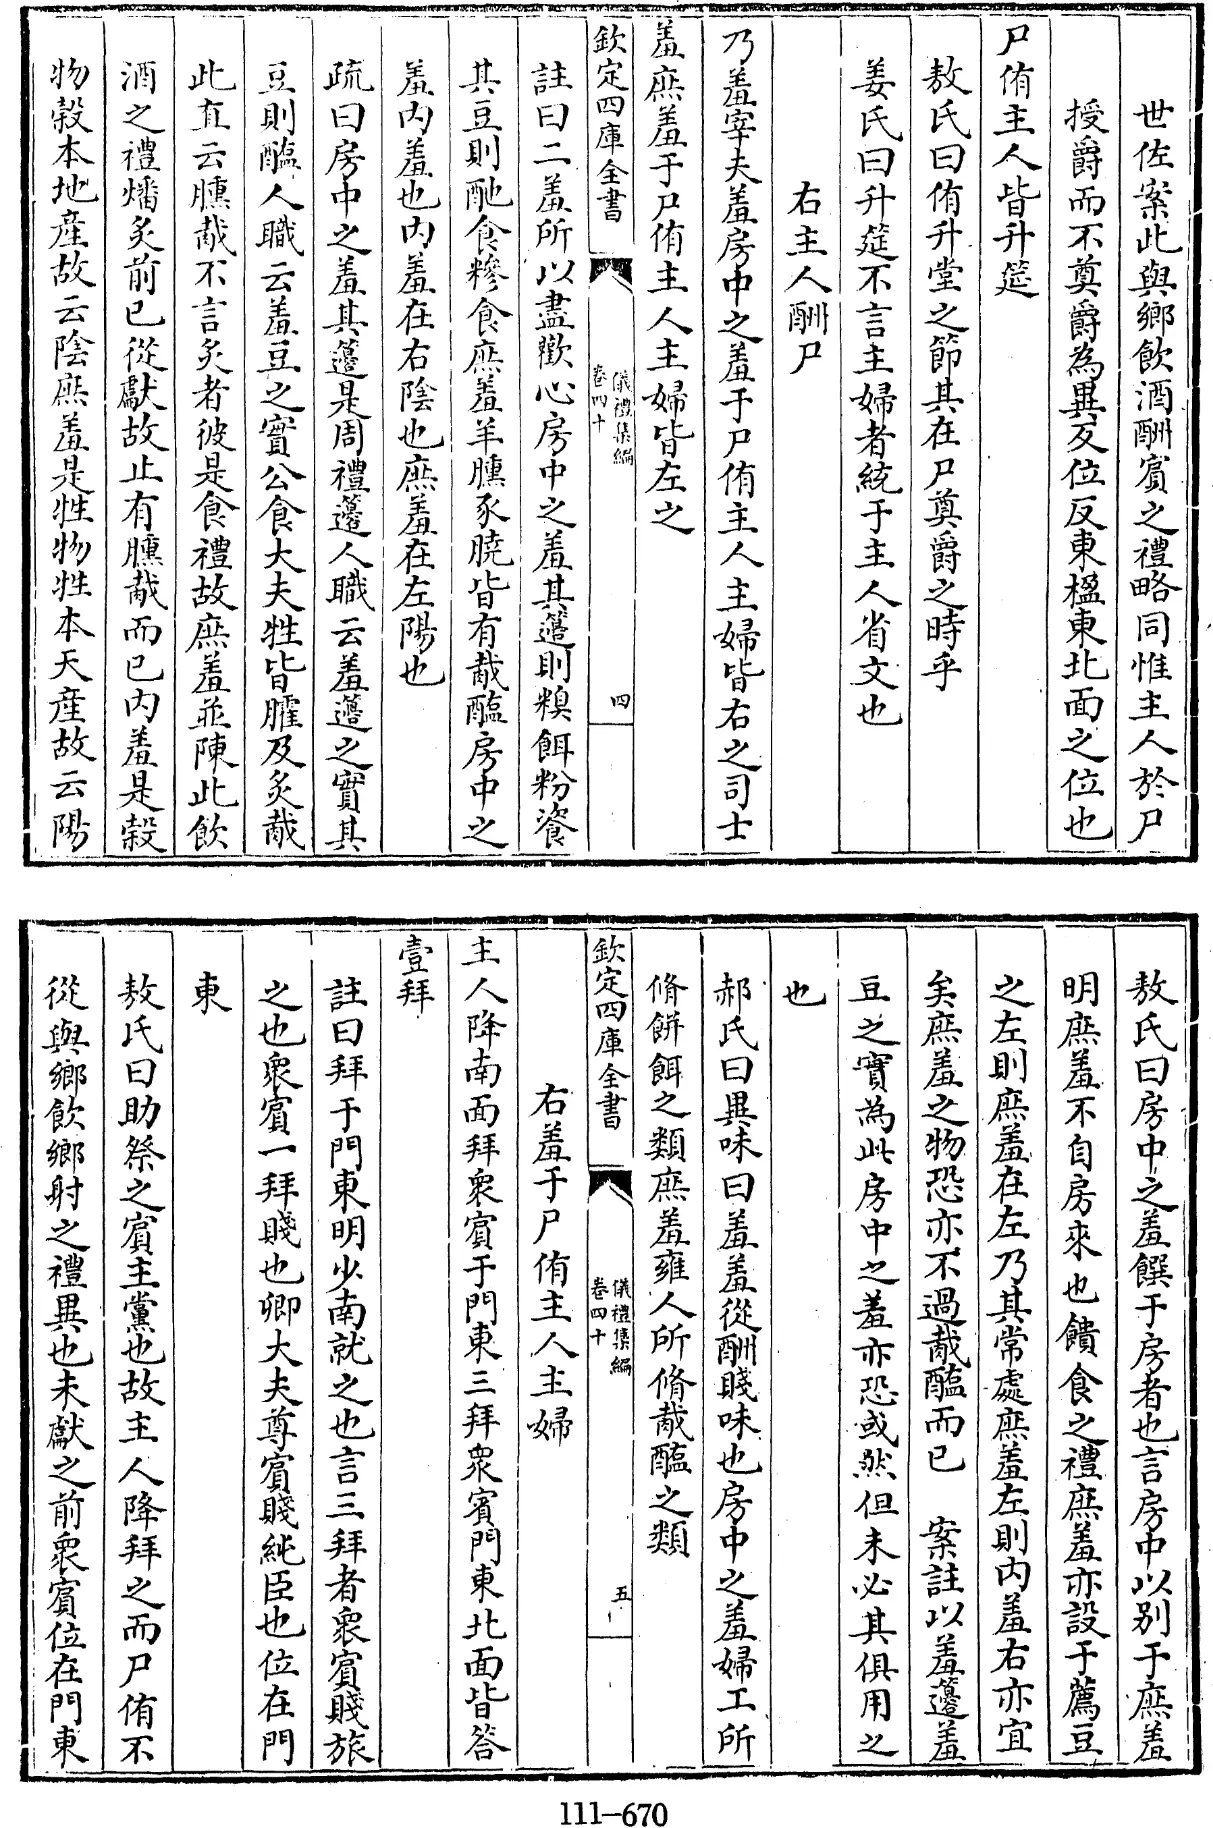 世佐案此與鄉飲酒酬賓之禮略同惟主人於尸
授爵而不奠爵為異反位反東楹東北面之位也
尸侑主人皆升筵
敖氏曰侑升堂之節其在尸奠爵之時乎
姜氏曰升筵不言主婦者統于主人省文也
右主人酬尸
乃羞宰夫羞房中之羞于尸侑主人主婦皆右之司士
欽定四庫全書
儀禮集編
卷四十
四
羞庶羞于尸侑主人主婦皆左之
註曰二羞所以盡歡心房中之羞其籩則糗餌粉餈
其豆則酏食糝食庶羞羊臐豕膮皆有胾醢房中之
羞内羞也内羞在右陰也庶羞在左陽也
疏曰房中之羞其籩是周禮籩人職云羞籩之實其
豆則醢人職云羞豆之實公食大夫牲皆臛及炙胾
此直云臐胾不言炙者彼是食禮故庶羞並陳此飲
酒之禮燔炙前已從獻故止有臐胾而已内羞是穀
物穀本地産故云陰庶羞是牲物牲本天産故云陽
敖氏曰房中之羞饌于房者也言房中以别于庶羞
明庶羞不自房來也饋食之禮庶羞亦設于薦豆
之左則庶羞在左乃其常處庶羞左則内羞右亦宜
矣庶羞之物恐亦不過胾醢而已　案註以羞籩羞
豆之實為此房中之羞亦恐或然但未必其俱用之
也
郝氏曰異味曰羞羞從酬賤味也房中之羞婦工所
脩餅餌之類庶羞雍人所脩胾醢之類
欽定四庫全書
儀禮集編
卷四十
五
右羞于尸侑主人主婦
主人降南面拜衆賓于門東三拜衆賓門東北面皆答
壹拜
註曰拜于門東明少南就之也言三拜者衆賓賤旅
之也衆賓一拜賤也卿大夫尊賓賤純臣也位在門
東
敖氏曰助祭之賓主黨也故主人降拜之而尸侑不
從與鄉飲鄉射之禮異也未獻之前衆賓位在門東
111-670